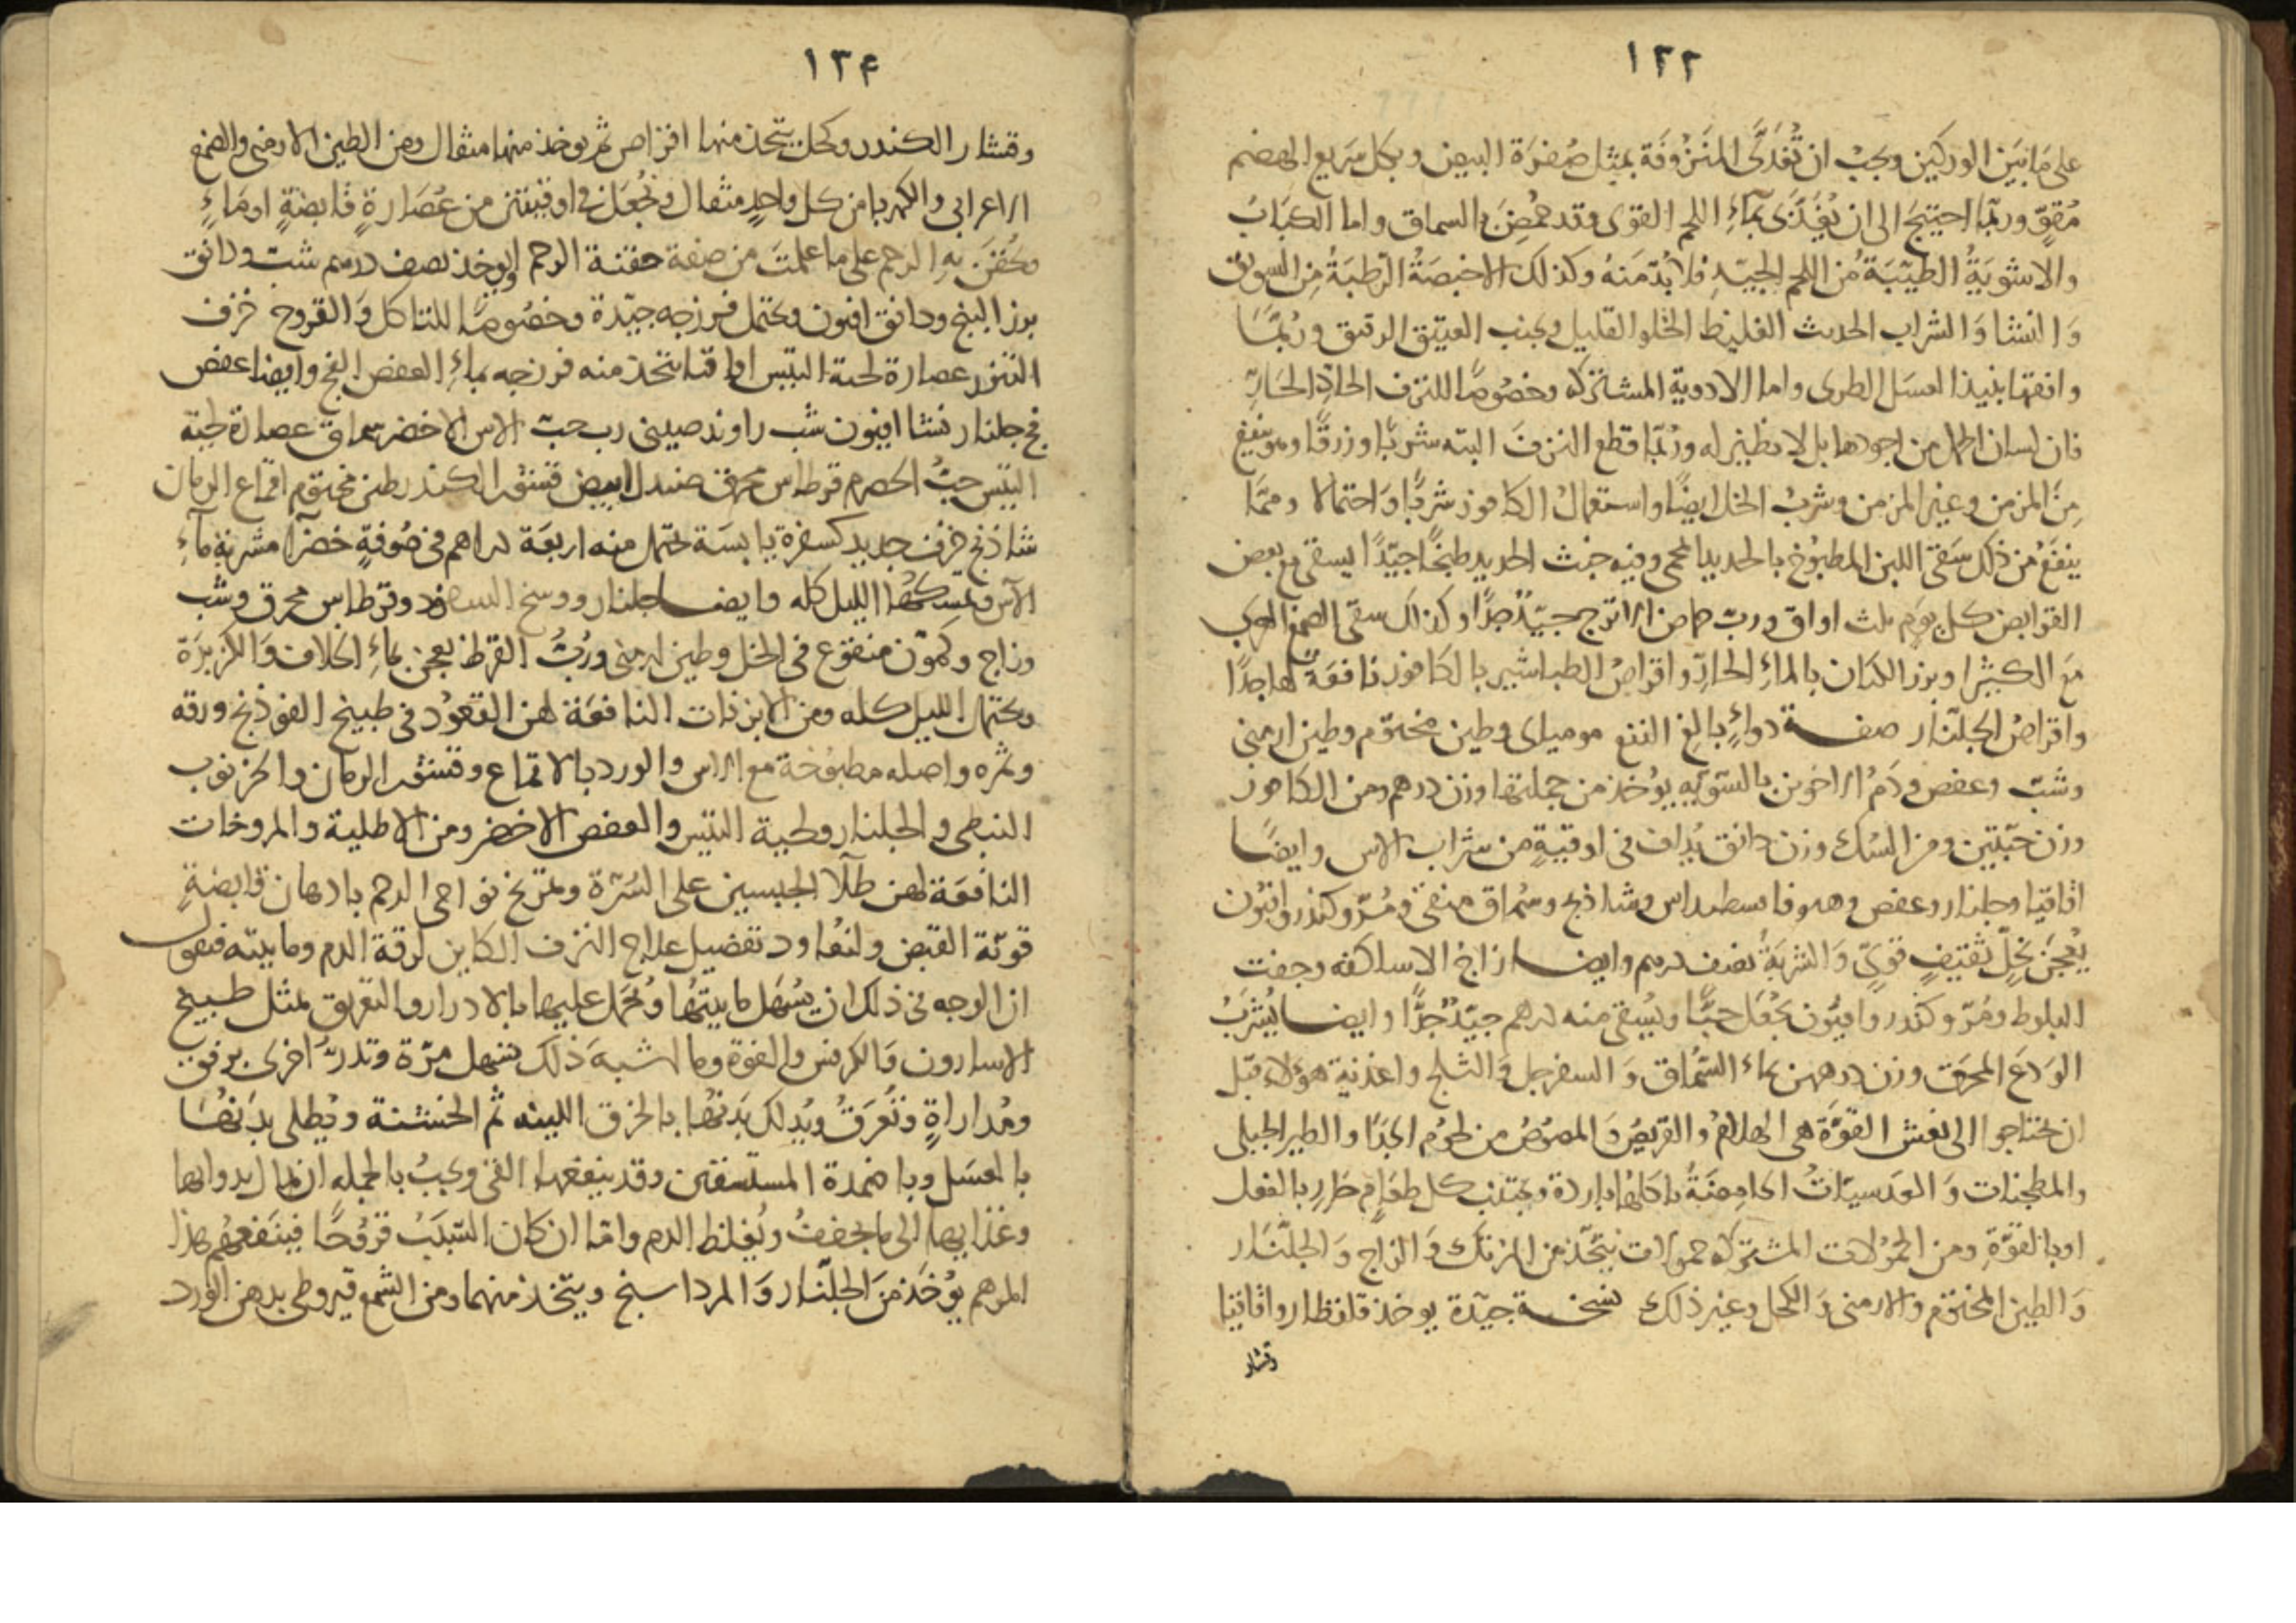 ١٣٣
على ما بين الوركين ويجب ان تُغذَّى المنزوفة بمثل صفرة البيض وبكل سريع الهضم
مُقوٍّ وربّما احتيج الى ان يُغذَى بماءِ اللحم القوى وقد حُمِّضَ بالسماق واما الكبَابُ
والاشويَةُ الطيّبَة من اللحم الجيّدِ فلا بُدّ مَنهُ وكذلك الاخبصَةُ الرّطبَةُ مِن السويق
وَالنشا وَالشراب الحديث الغليظ الحُلو القليل ويجنب العتيق الرقيق ورُبّمَا
وافقها نبيذ العسَل الطرى واما الادوية المشتركه وخصُوصًا للنزف الحادِّ الحَارِّ
فان لسان الحمل من اجودها بل لا نظير له ورُبّما قطع النزفَ البته شربًا وزرقًا وهو ينفع
مِنَ المزمن وغير المزمن وشربُ الخل ايضًا واستعمالُ الكافور شربًا وَاحتمالا وممَّا
ينفَعُ من ذلك سَقىُ اللبن المطبُوخ بالحديد المحمى وفيه خبث الحديد طبخًا جيّدًا يسقى مع بعض
القوابض كل يوم ثلث اواق وربّ حماض الاترج جيّدٌ جدًّا وكذلك سقى الصمغ العربى
مَع الكثيرا وبزر الكتان بالماءِ الحارّ واقراصُ الطباشير بالكافور نافعَة لها جدًّا
واقراصُ الجلّنار صفة دواءٍ بالِغ النفع موميَاى وطين مختوم وطين ارمنى
وشبّ وعفص ودَمُ الاخوين بالسّويه يؤخذ من جملتها وزن درهم ومن الكافور
وزن حَبّتين ومن السُك وزن دانق يُداف فى اوقيةٍ من شراب الاس وايضًا
اقاقيا وجلنار وعفص وهيوفا قسطيداس وشاذنج وسُماق منقى ومُرّ وكندر وافيُون
يُعجَن بخلٍّ ثقيفٍ قوىٍّ وَالشربَةُ نصف درهم وايضا زاج الاساكفه وجفت
البلوط ومُرّ وكندر وافيُون يُجعَل حَبًّا ويُسقى منه درهم جيّدٌ جدًّا وايضا يُشرَبُ
الوَدَعَ المحرَق وزن درهمين بماء السّمُاق وَالسفرجل وَالثلج واغذية هؤلاء قبل
ان يحتاجوا الى نعش القوّةَ هى الهلامُ والقريصُ وَالمصُوصُ من لحوم الجِدَا والطير الجبلى
والمطجنات وَالعدسيّاتُ الحامِضَةُ ياكلها باردة ويجتنب كل طعَامٍ حَارٍ بالفعل
اوبالقوّةِ ومن الحمُولات المشتركة حمولات تتّخذ من المرتك وَالزاج وَالجلّنَار
وَالطين المختوم والارمنى وَالكحل وغير ذلك نسخة جيّدة يوخذ قلقطار واقاقيا
وقشار
١٣٤
وقشار الكندر وكحل يتخذ منها اقراص ثم يوخذ منها مثقال ومن الطين الارمنى والصمغ
الاعرابى والكهربا من كل واحدٍ مثقال ويُجعَل فى اوقيتين من عُصَارةٍ قابضةٍ اومَاءٍ
ويحُقن بِه الرحم على ما علمتَ من صفة حقنة الرحم او يوخذ نصف درهم شب ودانق
بزر البنج ودانق افيون ويحتمل فرزجه جيّدة وخصُوصًا للتاكل وَالقروح خزف
التنور عصارة لحية التيس اقاقيا يتخذ منه فرزجه بماءِ العفص الفج وايضا عفص
فج جلنار نشا افيون شب راوند صينى رب حبّ الاس الاخضر سماق عصارة لحية
التيس حبُّ الحصرم قرطاس محرق صندل ابيض قشور الكندر طين مختوم اقماع الرمان
شاذنج خزف جديد كسفرة يابسَة تحتمل منه اربعَة دراهم فى صُوفةٍ خضرآ مشربة مآءِ
الآس وتمسكها الليل كله وايضا جلنار ووسخ السفود وقرطاس محرق وشب
وزاج وكمّون منقوع فى الخل وطين ارمنى ورُبُّ القرظ يعجن بماءِ الخلاف وَالكزبرَة
ويحتمل الليل كله ومن الابزنات النافعَة لهن القعُود فى طبيخ الفوذنج ورقه
وثمره واصله مطبُوخة مع الاس والورد بالاقماع وقشور الرمان والخرنوب
النبطى والجلنار ولحية التيس والعفص الاخضر ومن الاطلية والمروخات
النافعَة لهن طلآ الجبسين على السُرّة وتمريخ نواحى الرحم بادهان قابضةٍ
قويّة القبض ولنعُاود تفصيل علاج النزف الكاين لرقة الدم ومايته فنقول
ان الوجه فى ذلك ان يُسهَل مايتها ويُحَمل عليها بالادرار والتعريق بمثل طبيخ
الاسارون وَالكرفس والفوة وما اشبهَ ذلك تسهل مرّة وتدرُّ اخرى برفق
ومُداراةٍ وتُعرَقُ ويُدلك بدَنُها بالخرق اللينه ثم الخشنة ويُطلى بدَنُها
بالعسَل وباضمدة المستسقين وقد ينفعها القىُ ويجبُ بالجمله ان يُمال بدوايها
وغذايها الى ما يجففُ ويُغلظ الدم وامّا ان كان السّبَبُ قروُحًا فينفَعُهُم هذا
المرهم يؤخَذ منَ الجلّنار وَالمرداسنج ويتّخذ منهما ومن الشمع قيروطى بدهن الورد